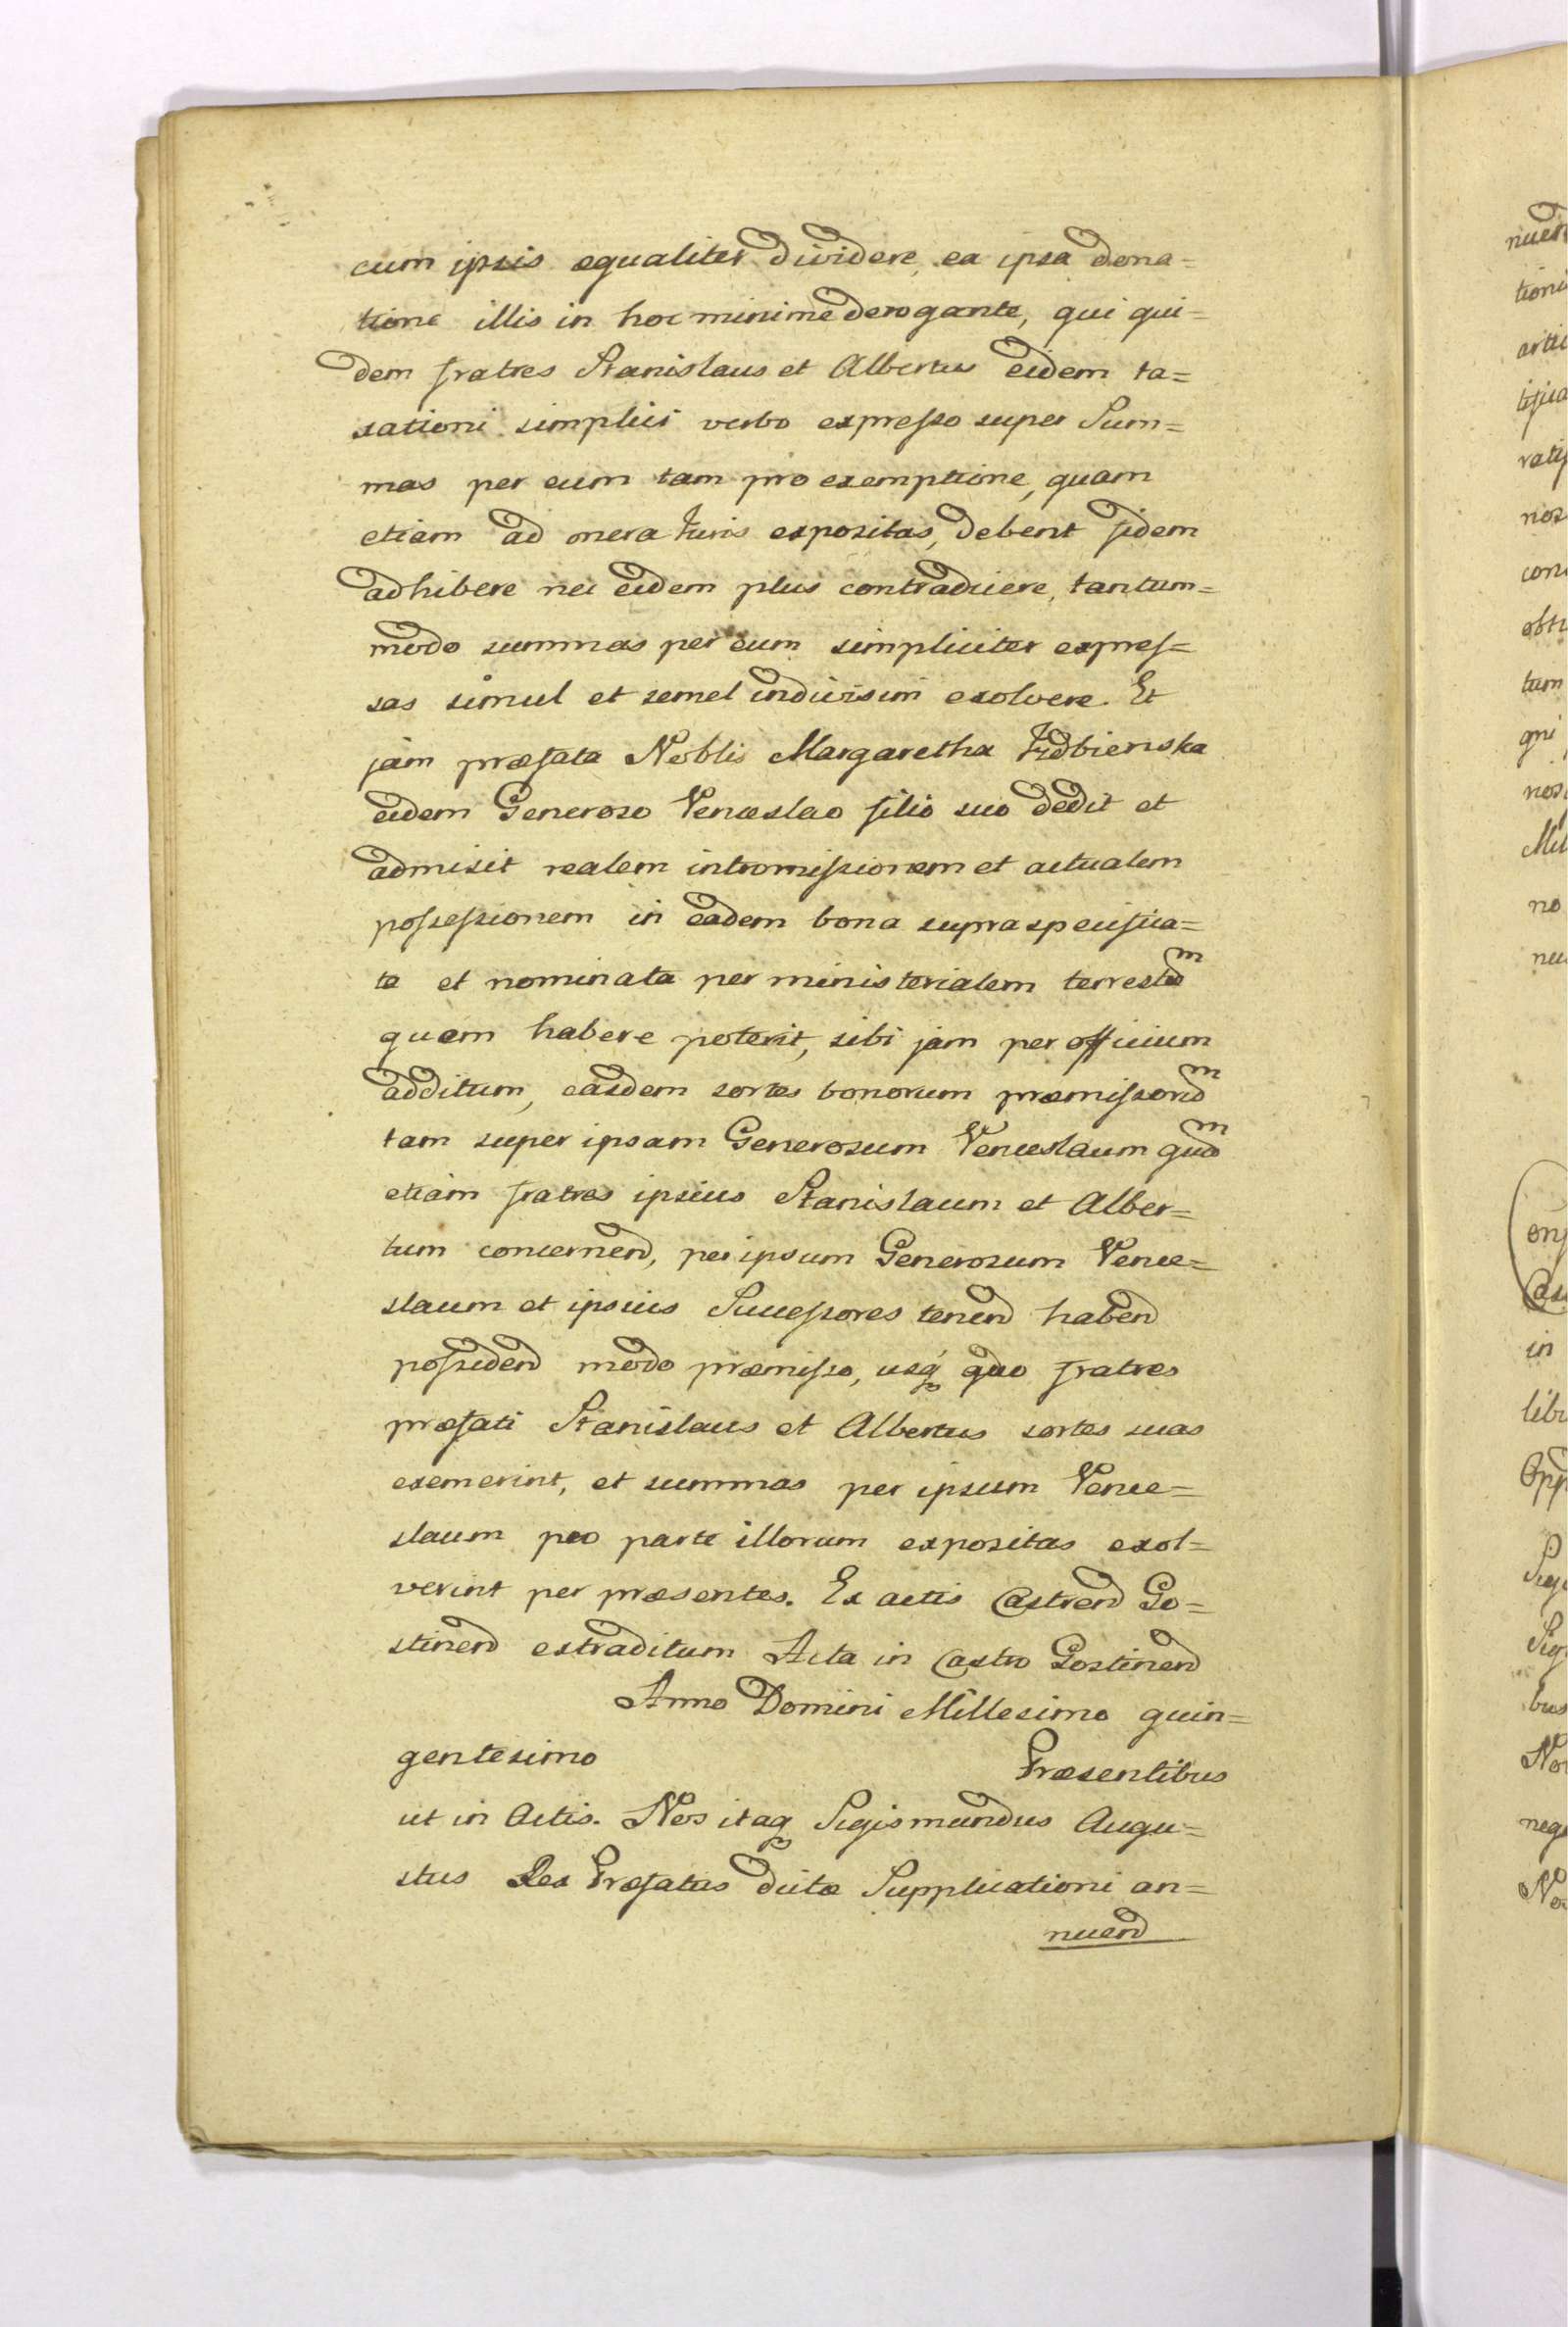 cum ipsis equaliter dividere, ea ipsa dona=
tione illis in hoc minime derogante, qui qui=
dem fratres Stanislaus et Albertus eidem ta=
xationi simplici verbo expresso super Sum=
mas per eum tam pro exemptione, quam
etiam ad onera Iuris expositas, debent fidem
adhibere nec eidem plus contradicere, tantum=
modo summas per eum simpliciter expres=
sas simul et semel indivisim exolvere. Et
jam præfata Noblis Margaretha
eidem Generoso Venceslao filio suo dedit et
admisit realem intromissionem et actualem
possessionem in eadem bona supraspecifica=
ta et nominata per ministerialem terrestrem
quem habere poterit, sibi jam per officium
additum, easdem sortes bonorum præmissord
tam super ipsam Generosum Venceslaum qud
etiam fratres ipsius Stanislaum et Alber=
tum concernend, per ipsum Generosum Vence=
slaum et ipsius Successores tenend habend
possidend modo præmisso, usq quo fratres
præfati Stanislaus et Albertus sortes suas
exemerint, et summas per ipsum Vence=
slaum pro parte illorum expositas exol=
verint per præsentes. Ex actis Castrend Go=
stinend extraditum Acta in Castro Gostinend
Anno Domini Millesimo quin=
gentesimo Præsentibus
ut in Actis. Nos itaq Sigismundus Augu=
stus Rex Præfatus dictæ Supplicationi an=
nuend
nuen